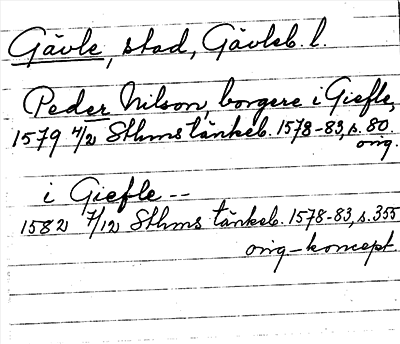 Gävle, stad, Gävleb. l.
Peder Nilson, borgere i Giefle,
1579 4/2 Sthms tänkeb. 1578-83, s. 80.
orig.
i Giefle --
1582 7/12 Sthms tänkeb. 1578-83, s. 355
orig-koncept.